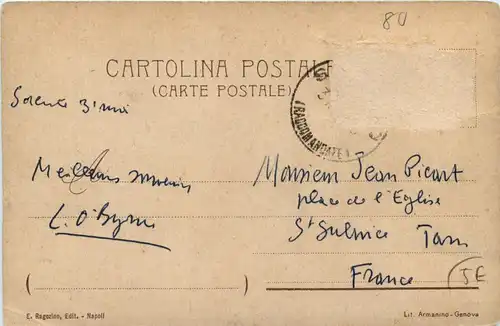 80
CARTOLINA POSTALE
(CARTE POSTALE)
(RACCOMANDATE)
Sorente 3 mai
Meilleurs souvenirs
L. O'Byrne
Monsieur Jean Picart
place de l'Eglise
St Sulpice Tarn
France
JE
E. Ragozino, Edit. - Napoli
Lit. Armanino - Genova